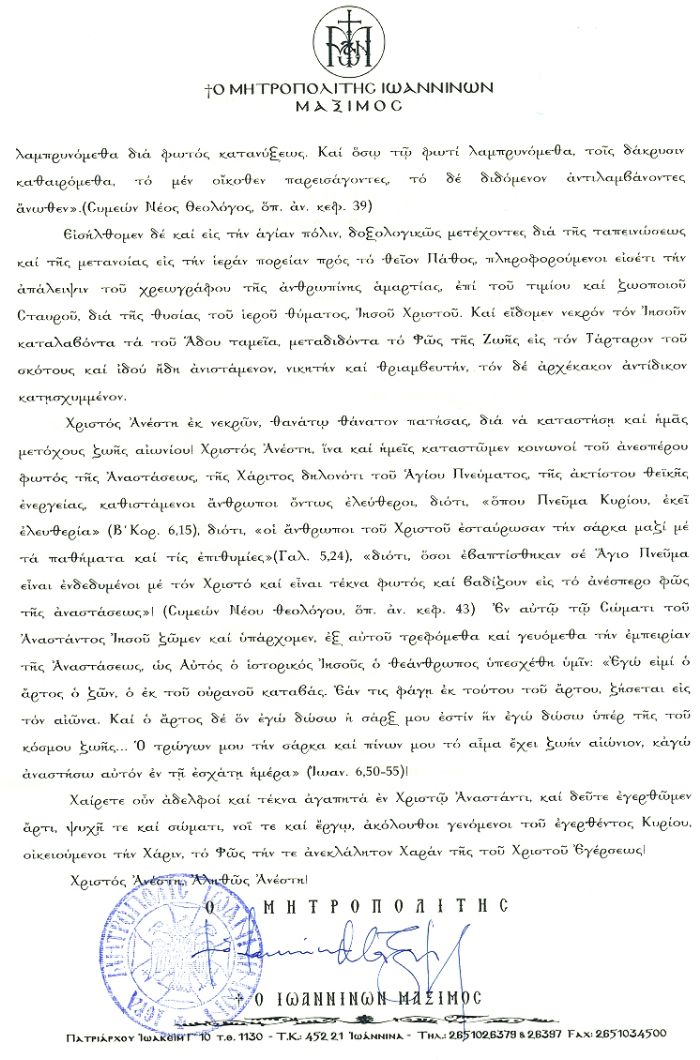 †Ο ΜΗΤΡΟΠΟΛΙΤΗΣ ΙΩΑΝΝΙΝΩΝ
ΜΑΞΙΜΟΣ
λαμπρυνόμεθα διά φωτός κατανύξεως. Καί ὅσῳ τῷ φωτί λαμπρυνόμεθα, τοῖς δάκρυσιν
καθαιρόμεθα, τό μέν οἴκοθεν παρεισάγοντες, τό δέ διδόμενον ἀντιλαμβάνοντες
ἄνωθεν».(Συμεών Νέος Θεολόγος, ὅπ. ἀν. κεφ. 39)
Εἰσήλθομεν δέ καί εἰς τήν ἁγίαν πόλιν, δοξολογικῶς μετέχοντες διά τῆς ταπεινώσεως
καί τῆς μετανοίας εἰς τήν ἱεράν πορείαν πρός τό θεῖον Πάθος, πληροφορούμενοι εἰσέτι τήν
ἀπάλειψιν τοῦ χρεωγράφου τῆς ἀνθρωπίνης ἁμαρτίας, ἐπί τοῦ τιμίου καί ζωοποιοῦ
Σταυροῦ, διά τῆς θυσίας τοῦ ἱεροῦ θύματος, Ἰησοῦ Χριστοῦ. Καί εἴδομεν νεκρόν τόν Ἰησοῦν
καταλαβόντα τά τοῦ Ἅδου ταμεῖα, μεταδιδόντα τό Φῶς τῆς Ζωῆς εἰς τόν Τάρταρον τοῦ
σκότους καί ἰδού ἤδη ἀνιστάμενον, νικητήν καί θριαμβευτήν, τόν δέ ἀρχέκακον ἀντίδικον
κατησχυμμένον.
Χριστός Ἀνέστη ἐκ νεκρῶν, θανάτῳ θάνατον πατήσας, διά νά καταστήσῃ καί ἡμᾶς
μετόχους ζωῆς αἰωνίου! Χριστός Ἀνέστη, ἵνα καί ἡμεῖς καταστῶμεν κοινωνοί τοῦ ἀνεσπέρου
φωτός τῆς Ἀναστάσεως, τῆς Χάριτος δηλονότι τοῦ Ἁγίου Πνεύματος, τῆς ἀκτίστου θεϊκῆς
ἐνεργείας, καθιστάμενοι ἄνθρωποι ὄντως ἐλεύθεροι, διότι, «ὅπου Πνεῦμα Κυρίου, ἐκεῖ
ἐλευθερία» (Β΄Κορ. 6,15), διότι, «οἱ ἄνθρωποι τοῦ Χριστοῦ ἐσταύρωσαν τήν σάρκα μαζί μέ
τά παθήματα καί τίς ἐπιθυμίες»(Γαλ. 5,24), «διότι, ὅσοι ἐβαπτίσθηκαν σέ Ἅγιο Πνεῦμα
εἶναι ἐνδεδυμένοι μέ τόν Χριστό καί εἶναι τέκνα φωτός καί βαδίζουν εἰς τό ἀνέσπερο φῶς
τῆς ἀναστάσεως»! (Συμεών Νέου Θεολόγου, ὅπ. ἀν. κεφ. 43) Ἐν αὐτῷ τῷ Σώματι τοῦ
Ἀναστάντος Ἰησοῦ ζῶμεν καί ὑπάρχομεν, ἐξ αὐτοῦ τρεφόμεθα καί γευόμεθα τήν ἐμπειρίαν
τῆς Ἀναστάσεως, ὡς Αὐτός ὁ ἱστορικός Ἰησοῦς ὁ θεάνθρωπος ὑπεσχέθη ὑμῖν: «Ἐγώ εἰμί ὁ
ἄρτος ὁ ζῶν, ὁ ἐκ τοῦ οὐρανοῦ καταβάς. Ἐάν τις φάγῃ ἐκ τούτου τοῦ ἄρτου, ζήσεται εἰς
τόν αἰῶνα. Καί ὁ ἄρτος δέ ὅν ἐγώ δώσω ἡ σάρξ μου ἐστίν ἥν ἐγώ δώσω ὑπέρ τῆς τοῦ
κόσμου ζωῆς... Ὁ τρώγων μου τήν σάρκα καί πίνων μου τό αἷμα ἔχει ζωήν αἰώνιον, κἀγώ
ἀναστήσω αὐτόν ἐν τῇ ἐσχάτῃ ἡμέρα» (Ἰωαν. 6,50-55)!
Χαίρετε οὖν ἀδελφοί καί τέκνα ἀγαπητά ἐν Χριστῷ Ἀναστάντι, καί δεῦτε ἐγερθῶμεν
ἄρτι, ψυχῇ τε καί σώματι, νοΐ τε καί ἔργῳ, ἀκόλουθοι γενόμενοι τοῦ ἐγερθέντος Κυρίου,
οἰκειούμενοι τήν Χάριν, τό Φῶς τήν τε ἀνεκλάλητον Χαράν τῆς τοῦ Χριστοῦ Ἐγέρσεως!
Χριστός Ἀνέστη, Ἀληθῶς Ἀνέστη!
Ο ΜΗΤΡΟΠΟΛΙΤΗΣ
† Ο ΙΩΑΝΝΙΝΩΝ ΜΑΞΙΜΟΣ
ΠΑΤΡΙΑΡΧΟΥ ΙΩΑΚΕΙΜ Γ΄ 10 Τ.Θ. 1130 - Τ.Κ.: 452 21 ΙΩΑΝΝΙΝΑ - ΤΗΛ.: 2651026379 & 26397 FAX: 2651034500